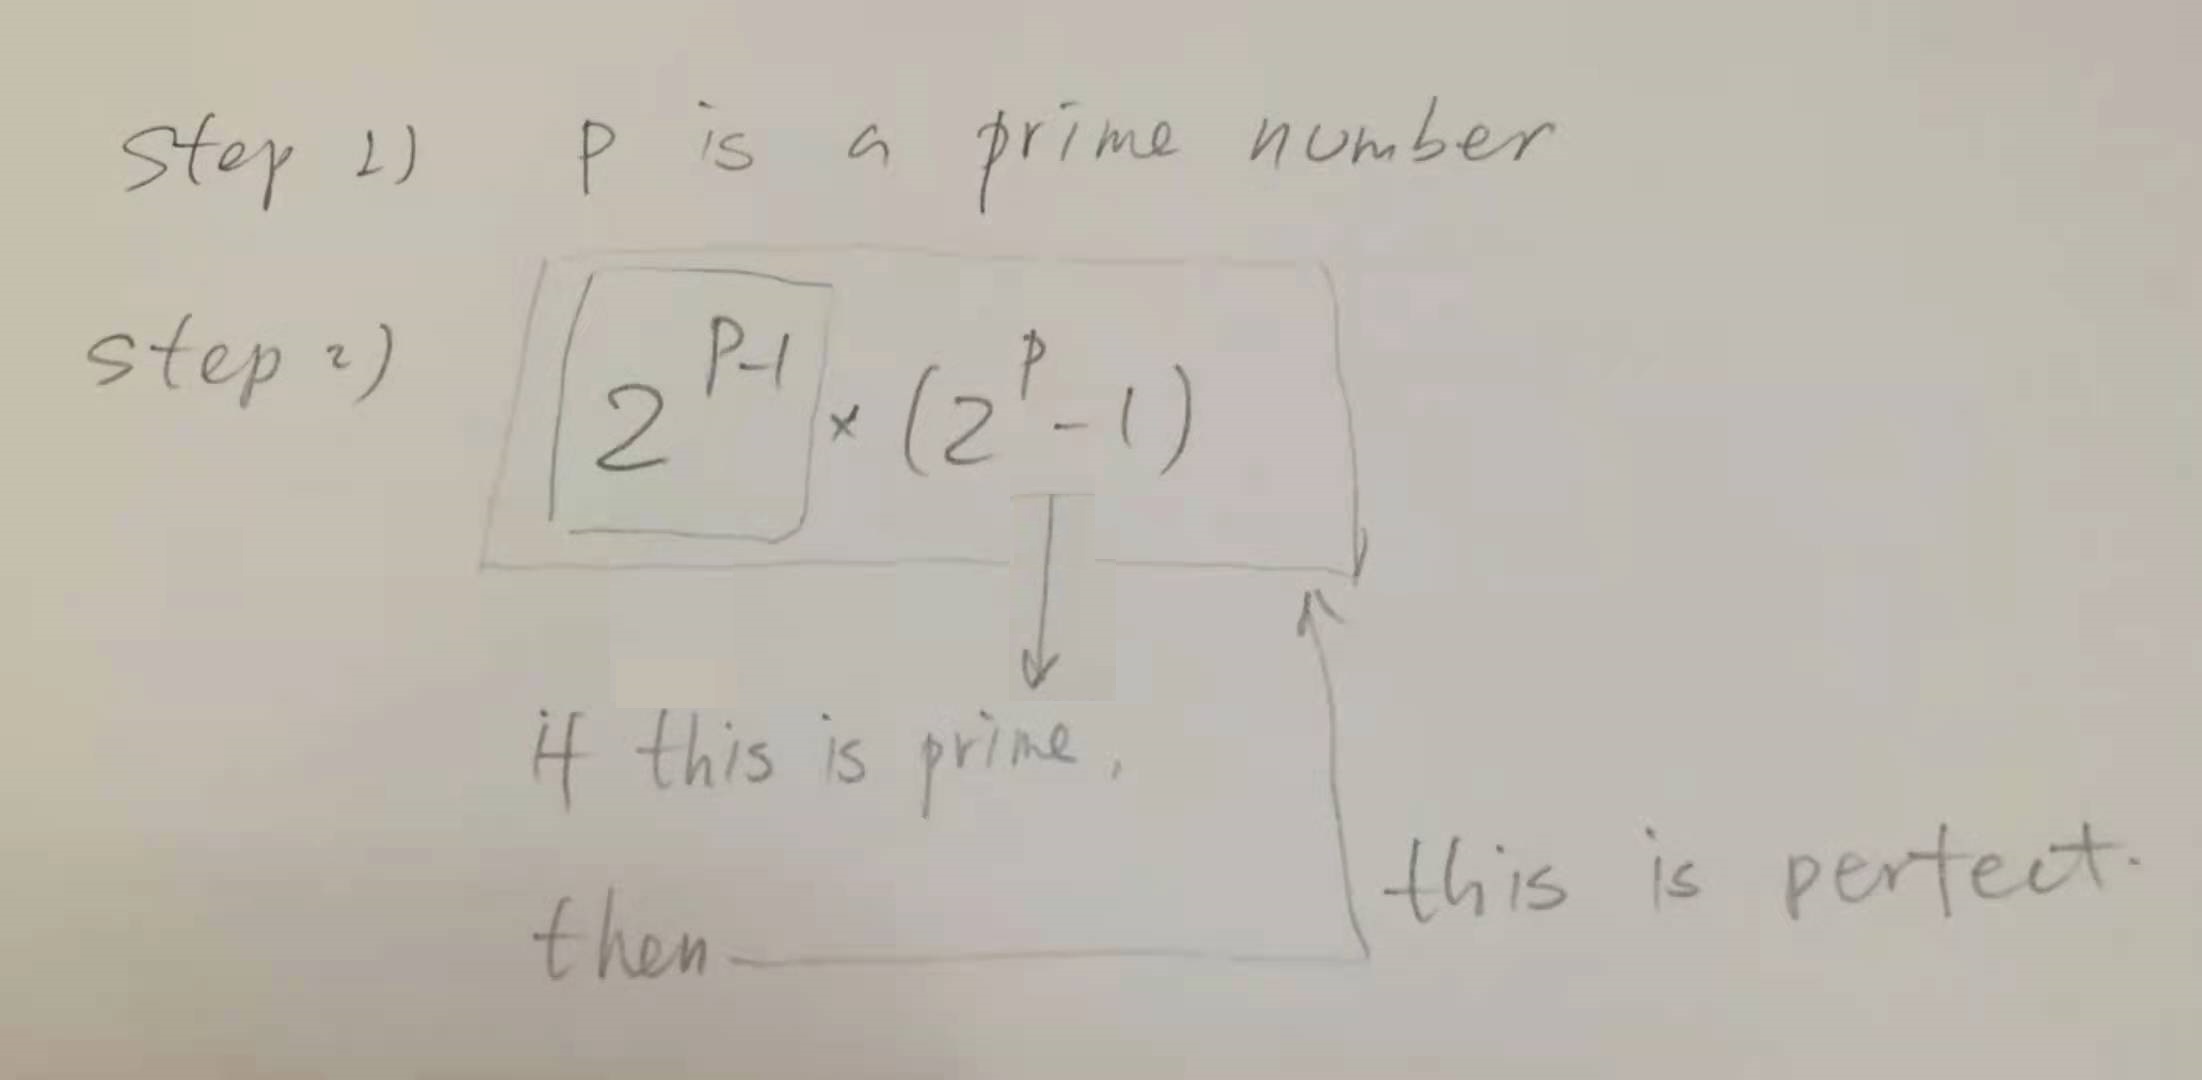 Step 1) P is a prime number
Step 2) 2^{P-1} × (2^P - 1)
if this is prime,
then
this is perfect.